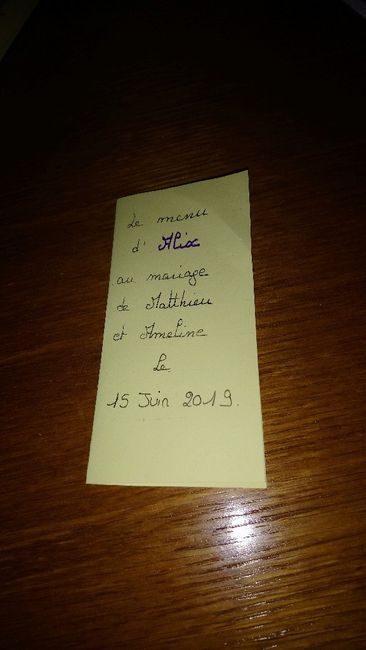 Le menu
d' Alix
au mariage
de Matthieu
et Ameline
Le
15 Juin 2019.